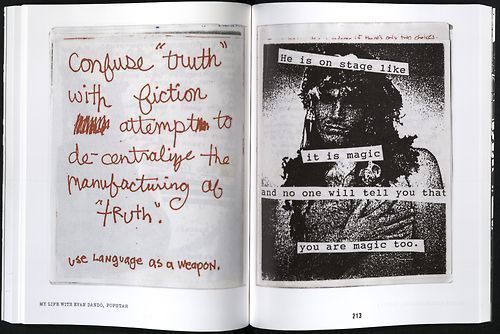 Confuse "truth"
with fiction
attempt to
de-centralize the
manufacturing of
"truth".
use Language as a weapon.
MY LIFE WITH EVAN DANDO, POPSTAR
if there's only two choices.
He is on stage like
it is magic
and no one will tell you that
you are magic too.
213